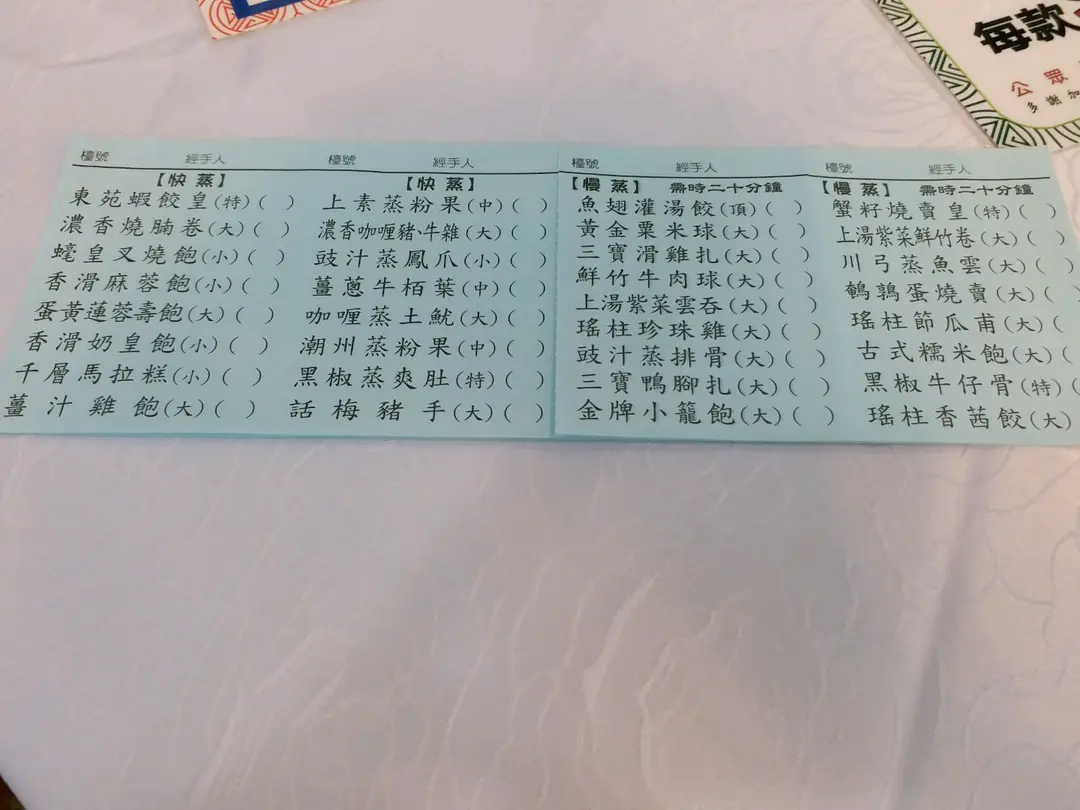 每款
公眾
多謝加
檯號 經手人
【快蒸】
東苑蝦餃皇(特)( )
濃香燒腩卷(大)( )
蠔皇叉燒飽(小)( )
香滑麻蓉飽(小)( )
蛋黃蓮蓉壽飽(大)( )
香滑奶皇飽(小)( )
千層馬拉糕(小)( )
薑汁雞飽(大)( )
檯號 經手人
【快蒸】
上素蒸粉果(中)( )
濃香咖喱豬、牛雜(大)( )
豉汁蒸鳳爪(小)( )
薑蔥牛栢葉(中)( )
咖喱蒸土魷(大)( )
潮州蒸粉果(中)( )
黑椒蒸爽肚(特)( )
話梅豬手(大)( )
檯號 經手人
【慢蒸】 需時二十分鐘
魚翅灌湯餃(頂)( )
黃金粟米球(大)( )
三寶滑雞扎(大)( )
鮮竹牛肉球(大)( )
上湯紫菜雲吞(大)( )
瑤柱珍珠雞(大)( )
豉汁蒸排骨(大)( )
三寶鴨腳扎(大)( )
金牌小籠飽(大)( )
檯號 經手人
【慢蒸】 需時二十分鐘
蟹籽燒賣皇(特)( )
上湯紫菜鮮竹卷(大)( )
川弓蒸魚雲(大)( )
鵪鶉蛋燒賣(大)( )
瑤柱節瓜甫(大)(
古式糯米飽(大)(
黑椒牛仔骨(特)(
瑤柱香茜餃(大)